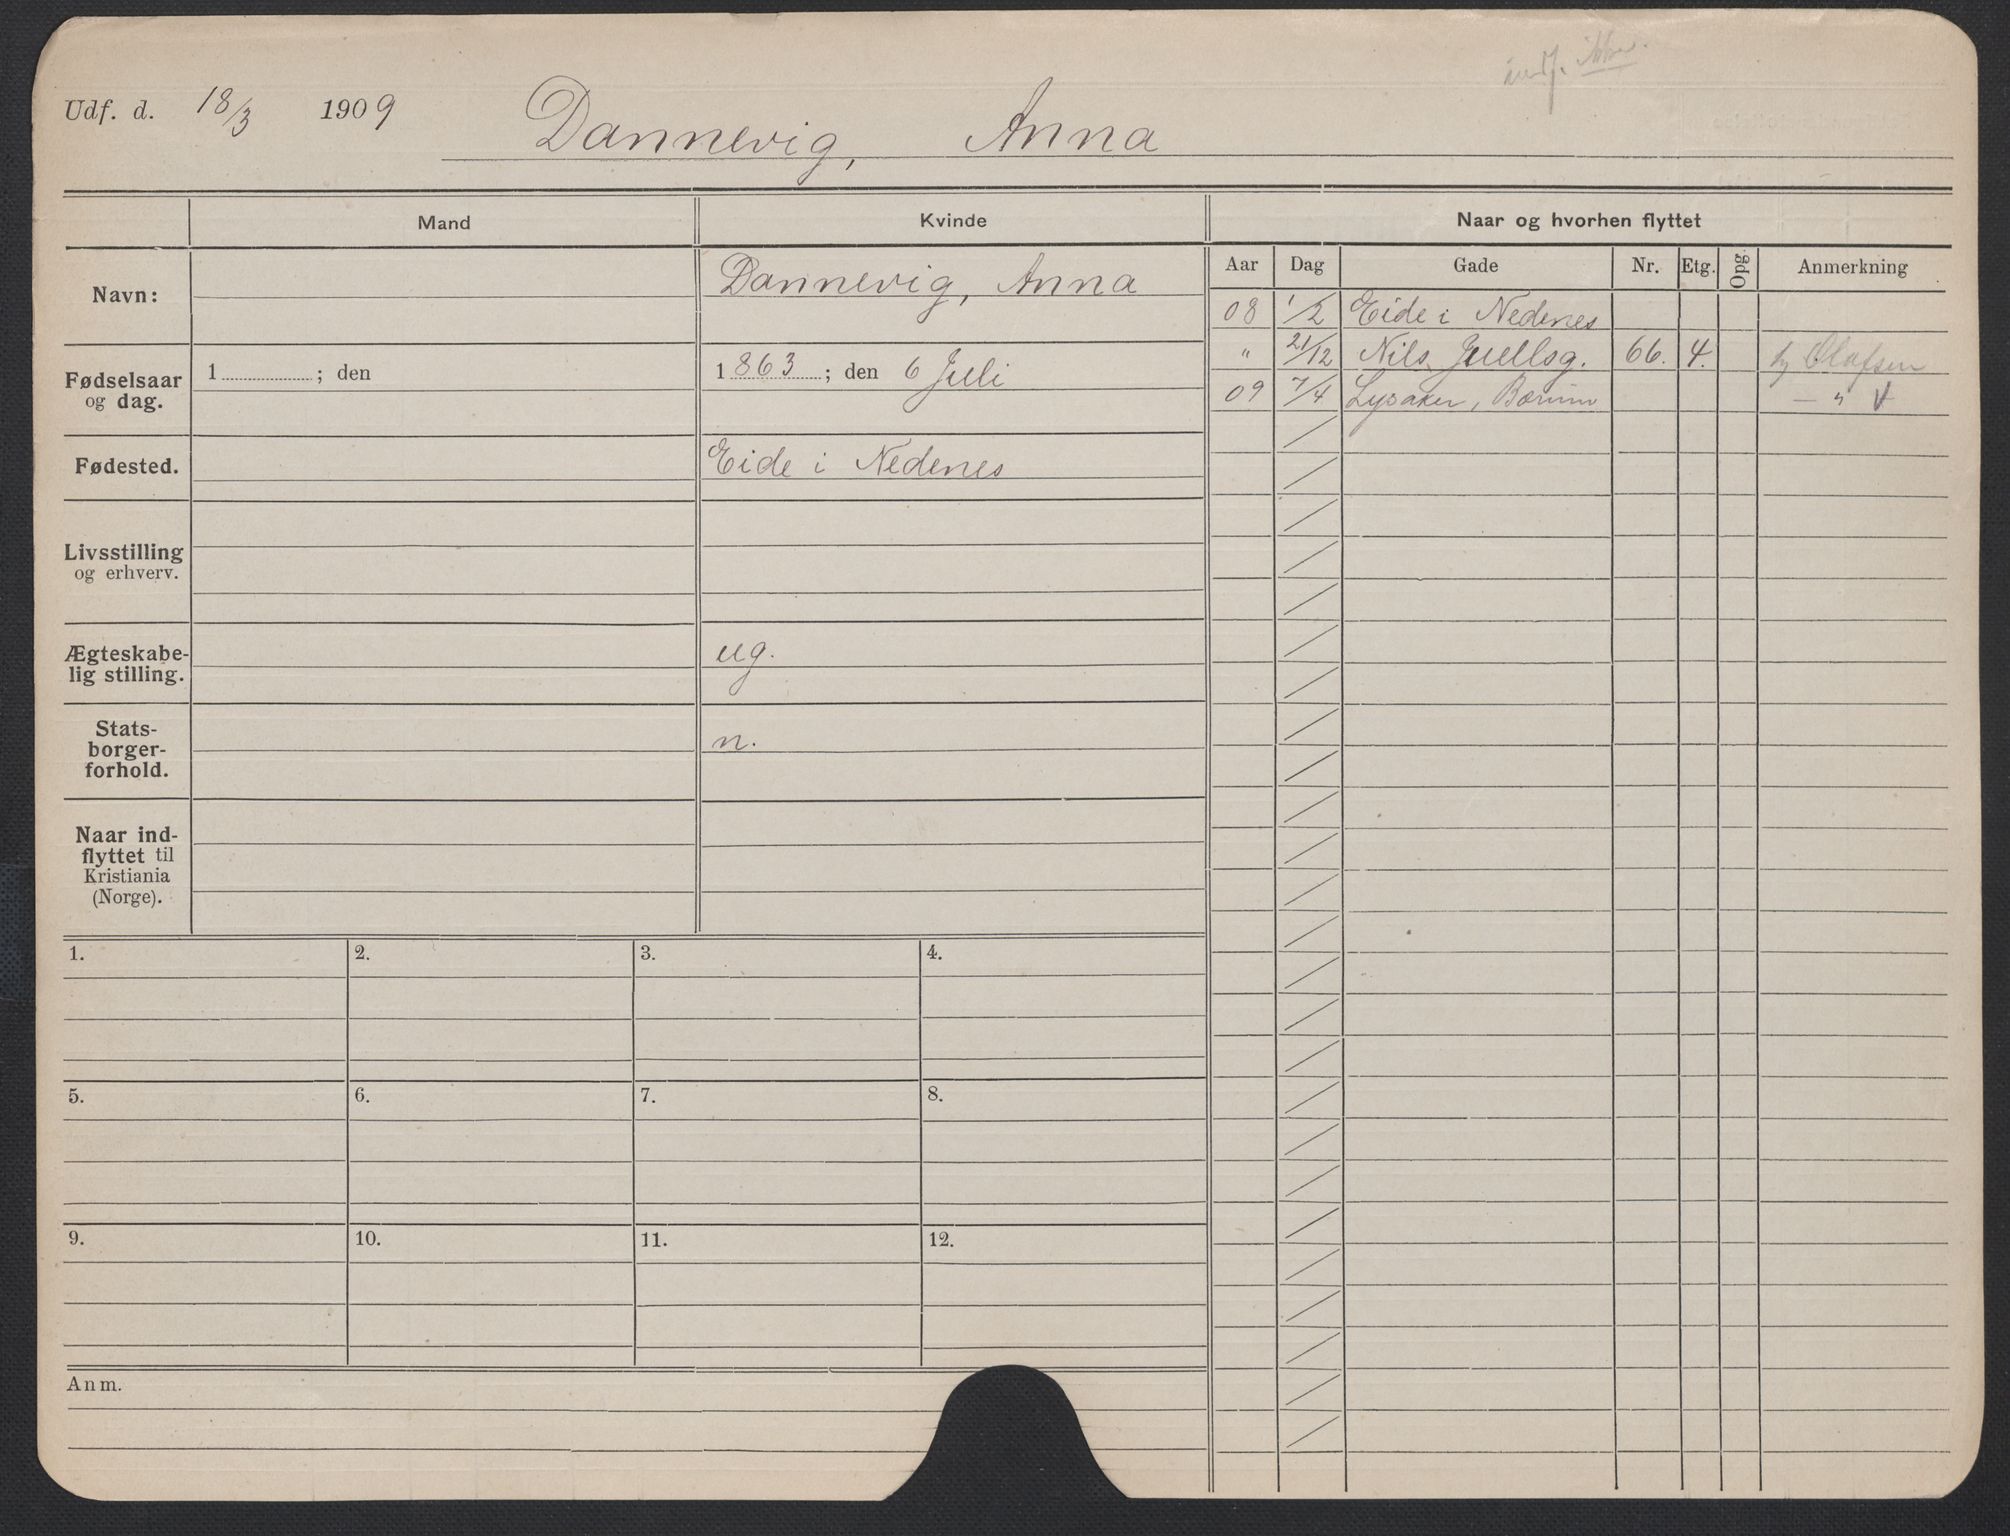 indf. ikke.
Udf. d. 18/3 1909 Dannevig, Anna
Mand Kvinde Naar og hvorhen flyttet
Aar Dag Gade Nr. Etg. Opg. Anmerkning
Navn: Dannevig, Anna
08 1/2 Eide i Nedenes
" 21/12 Nils Juellsg. 66. 4. hj Olafsen
09 7/4 Lysaker, Bærum — " V
Fødselsaar og dag. 1 ; den 1863 ; den 6 Juli
Fødested. Eide i Nedenes
Livsstilling
og erhverv.
Ægteskabe-
lig stilling. ug.
Stats-
borger-
forhold. n.
Naar ind-
flyttet til
Kristiania
(Norge).
1. 2. 3. 4.
5. 6. 7. 8.
9. 10. 11. 12.
Anm.